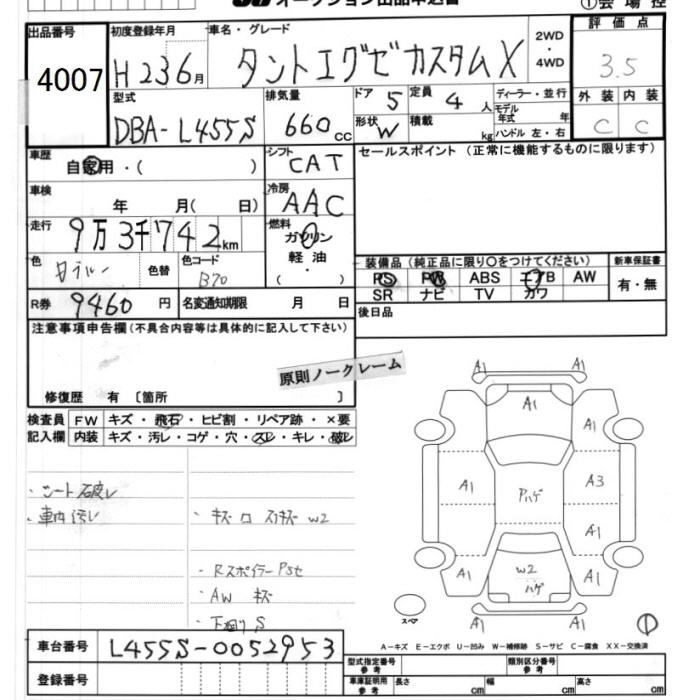 出品番号 初度登録年月 車名・グレード 2WD ・ 4WD 評価点
4007 H23 6月 タントエグゼカスタムX 3.5
型式 排気量 ドア 5 定員 4人 ディーラー・並行 外装 内装
DBA-L455S 660cc 形状 W 積載 kg モデル年式 年 ハンドル 左・右 C C
車歴 自家用・( ) シフト CAT セールスポイント (正常に機能するものに限ります)
車検 年 月( 日) 冷房 AAC
走行 9万3千742km 燃料 ガソリン 軽油 ・ ( )
色 色替 色コード B70
装備品 (純正品に限り○をつけてください) 新車保証書
PS PW ABS エアB AW 有・無
SR ナビ TV カワ
R券 9460円 名変通知期限 月 日 後日品
注意事項申告欄 (不具合内容等は具体的に記入して下さい)
原則ノークレーム
修復歴 有 〔箇所 〕
検査員記入欄 FW キズ・飛石・ヒビ割・リペア跡・×要
内装 キズ・汚レ・コゲ・穴・スレ・キレ・破レ
・シート破レ
・車内汚レ
・キズ ロ スリキズ W2
・RスポイラーPSセ
・AW キズ
・下廻りS
A1 A1
A1
A1 A1
A1 Pハゲ A3
A1
A1 W2 ハゲ A1
A1 A1
スペア
①
車台番号 L455S-0052953
A-キズ E-エクボ U-凹み W-補修跡 S-サビ C-腐食 XX-交換済
登録番号 型式指定番号 参考 類別区分番号 参考
車庫証明用 参考 長さ cm 幅 cm 高さ cm